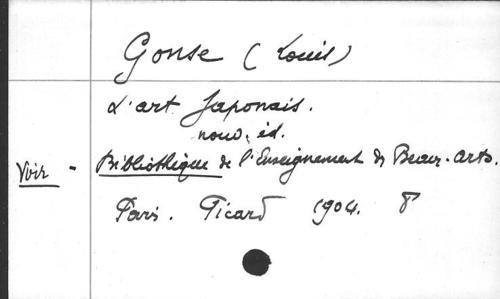 Gonse (Louis)
L'art Japonais.
nouv. éd.
Voir - Bibliothèque de l'Enseignement des Beaux-arts.
Paris. Picard 1904. 8°